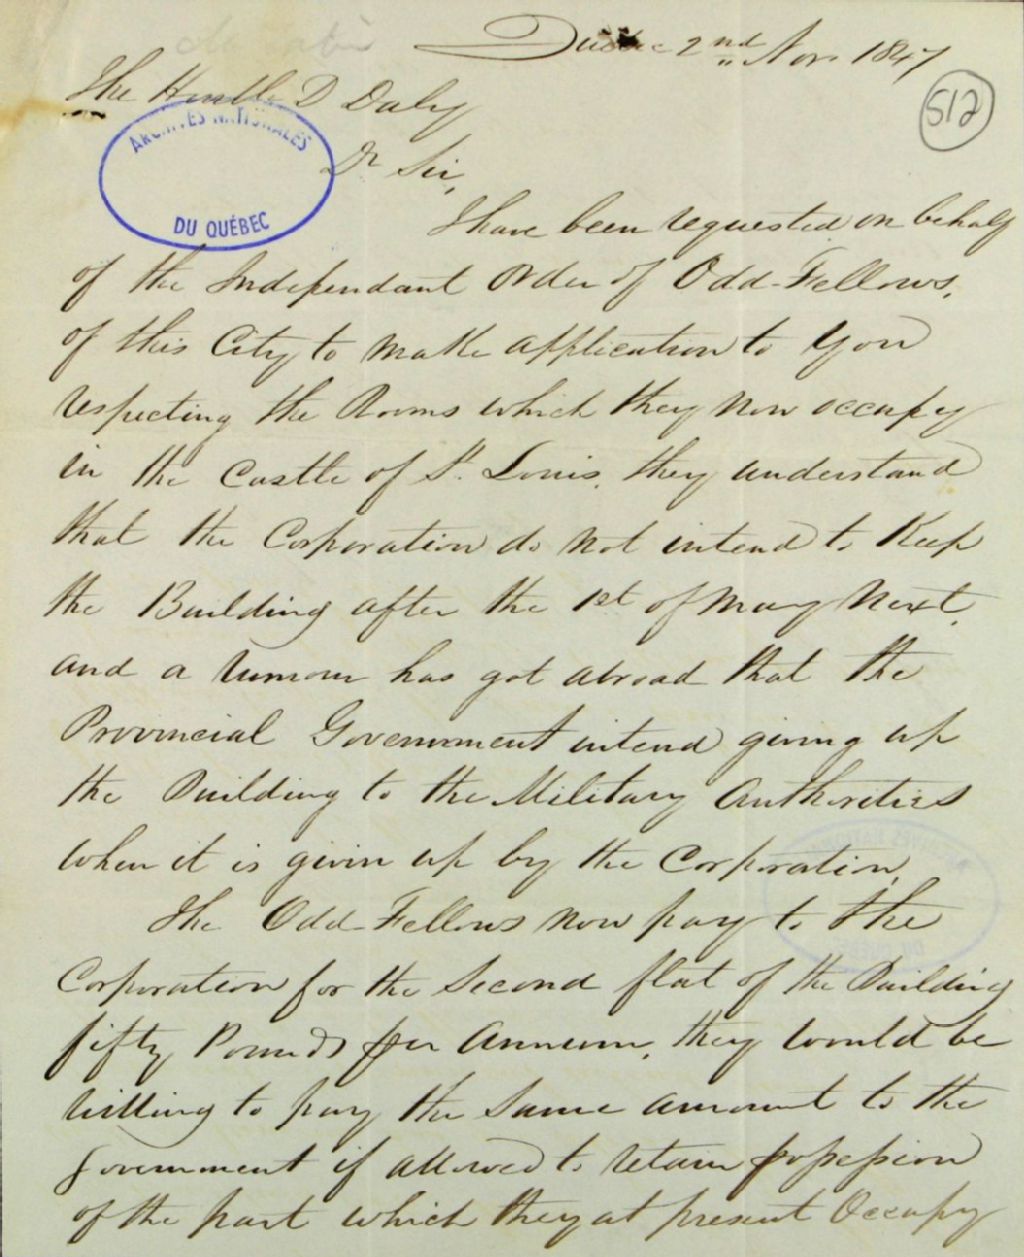 Quebec 2nd Nov 1847
512
The Honble D Daly
ARCHIVES NATIONALES
DU QUÉBEC
Dr Sir,
I have been requested on behalf
of the Independant Order of Odd-Fellows,
of this City to make application to You
respecting the Rooms which they now occupy
in the Castle of St. Louis, they understand
that the Corporation do not intend to Keep
the Building after the 1st of May Next,
and a rumour has got abroad that the
Provincial Government intend giving up
the Building to the Military Authorities
when it is givin up by the Corporation,
The Odd-Fellows now pay to the
Corporation for the Second flat of the Building
fifty Pounds per Annum, they would be
willing to pay the same amount to the
Government if allowed to retain possession
of the part which they at present Occupy